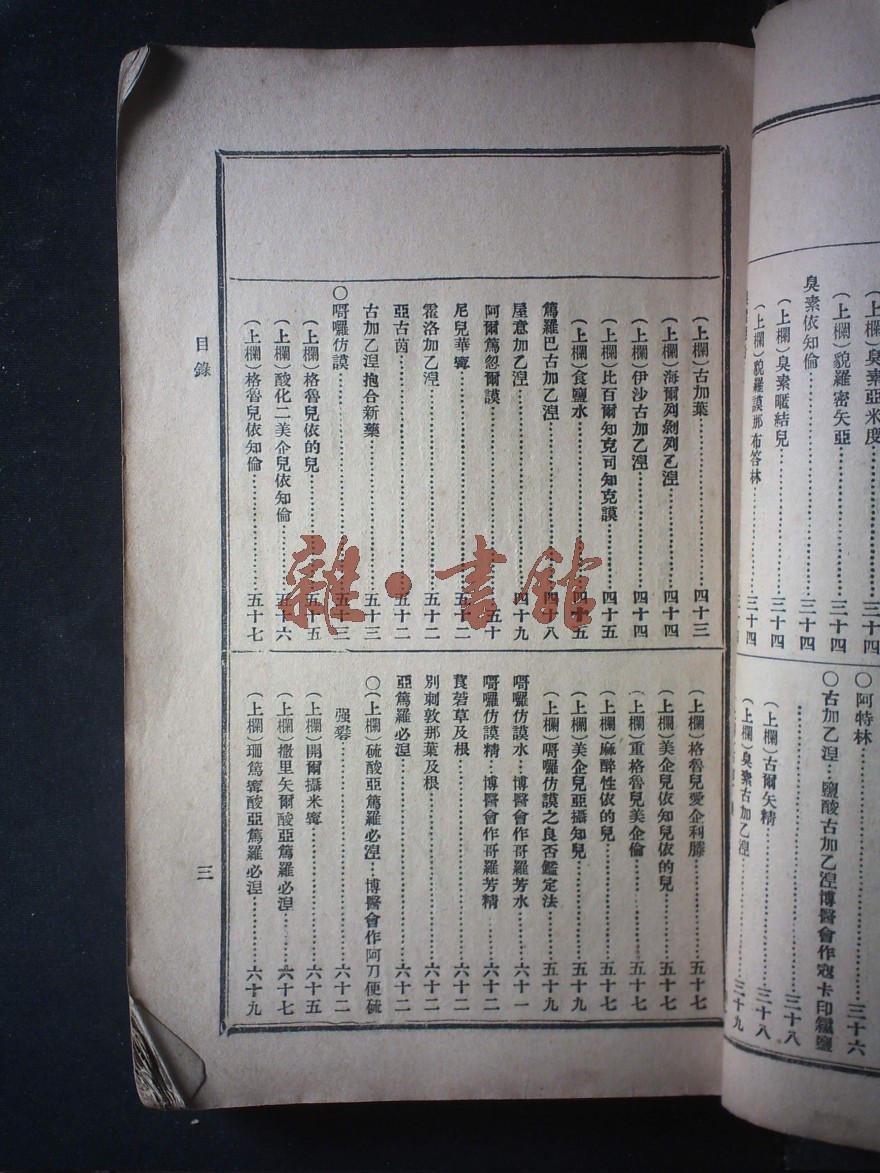 （上欄）臭素亞米度…三十四
（上欄）貌羅密矢亞…三十四
臭素依知倫…三十四
（上欄）臭素暱結兒…三十四
（上欄）貌羅謨那布答林
○阿特林…三十六
○古加乙湼…鹽酸古加乙湼博醫會作寇卡印鐵鹽
…三十八
（上欄）古爾矢精…三十八
（上欄）臭素古加乙湼…三十九
（上欄）古加葉…四十三
（上欄）海爾列剝列乙湼…四十四
（上欄）伊沙古加乙湼…四十四
（上欄）比百爾知克司知克謨…四十五
（上欄）食鹽水…四十五
篤羅巴古加乙湼…四十八
屋意加乙湼…四十九
阿爾篤忽爾謨…五十
尼兒華寗…五十二
霍洛加乙湼…五十二
亞古茵…五十二
古加乙湼抱合新藥…五十三
○嘚囉仿謨…五十三
（上欄）格魯兒依的兒…五十五
（上欄）酸化二美企兒依知倫…五十六
（上欄）格魯兒依知倫…五十七
（上欄）格魯兒愛企利滕…五十七
（上欄）美企兒依知兒依的兒…五十七
（上欄）重格魯兒美企倫…五十七
（上欄）麻醉性依的兒…五十七
（上欄）美企兒亞攝知兒…五十九
（上欄）嘚囉仿謨之良否鑑定法…五十九
嘚囉仿謨水…博醫會作哥羅芳水…六十一
嘚囉仿謨精…博醫會作哥羅芳精…六十二
莨菪草及根…六十二
別刺敦那葉及根…六十二
亞篤羅必湼…六十二
○（上欄）硫酸亞篤羅必湼…博醫會作阿刀便硫
强礬…六十二
（上欄）開爾攝米寗…六十五
（上欄）撒里矢爾酸亞篤羅必湼…六十七
（上欄）珊篤寗酸亞篤羅必湼…六十九
目錄
三
雜·書館